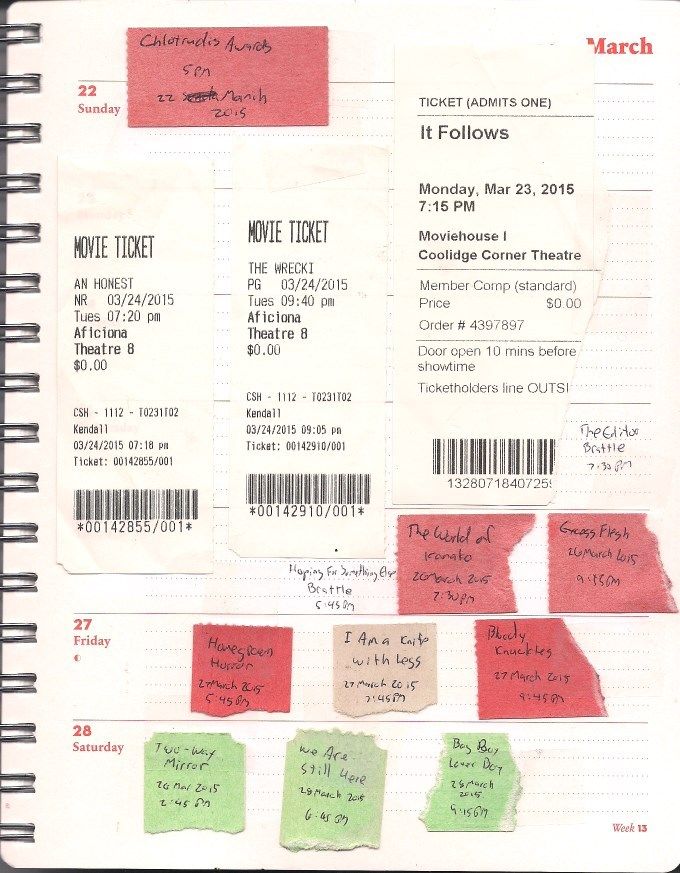 March
22
Sunday
Chlotrudis Awards
5pm
22 March
2015
MOVIE TICKET
AN HONEST
NR 03/24/2015
Tues 07:20 pm
Aficiona
Theatre 8
$0.00
CSH - 1112 - T0231T02
Kendall
03/24/2015 07:18 pm
Ticket: 00142855/001
*00142855/001*
MOVIE TICKET
THE WRECKI
PG 03/24/2015
Tues 09:40 pm
Aficiona
Theatre 8
$0.00
CSH - 1112 - T0231T02
Kendall
03/24/2015 09:05 pm
Ticket: 00142910/001
*00142910/001*
TICKET (ADMITS ONE)
It Follows
Monday, Mar 23, 2015
7:15 PM
Moviehouse I
Coolidge Corner Theatre
Member Comp (standard)
Price $0.00
Order # 4397897
Door open 10 mins before
showtime
Ticketholders line OUTSI
1328071840725
The Editor
Brattle
7:30 PM
Hoping For Something Else
Brattle
5:45 PM
The World of
Kanako
26 March 2015
7:30 PM
Gross Flesh
26 March 2015
9:45 PM
27
Friday
Honeymoon
Horror
27 March 2015
5:45 PM
I Am a Knife
with Legs
27 March 2015
7:45 PM
Bloody
Knuckles
27 March 2015
9:45 PM
28
Saturday
Two-Way
Mirror
28 Mar 2015
2:45 PM
We Are
Still Here
28 March 2015
6:45 PM
Bag Boy
Lover Boy
28 March
2015
9:15 PM
Week 13